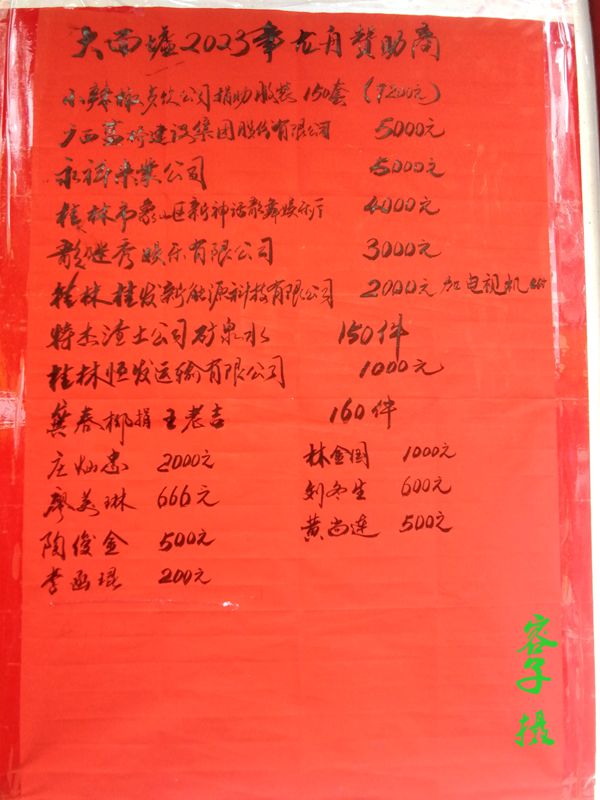 大面墟2023年龙舟赞助商
小辣椒餐饮公司捐助服装150套(7200元)
广西高岭建设集团股份有限公司 5000元
永祥米业公司 5000元
桂林市象山区新神话歌舞娱乐厅 4000元
歌继秀娱乐有限公司 3000元
桂林桂发新能源科技有限公司 2000元加电视机
特杰渣土公司矿泉水 150件
桂林恒发运输有限公司 1000元
龚春柳捐王老吉 160件
庄灿忠 2000元 林金国 1000元
廖美琳 666元 刘冬生 600元
陶俊金 500元 黄尚连 500元
李函琨 200元
容子 摄